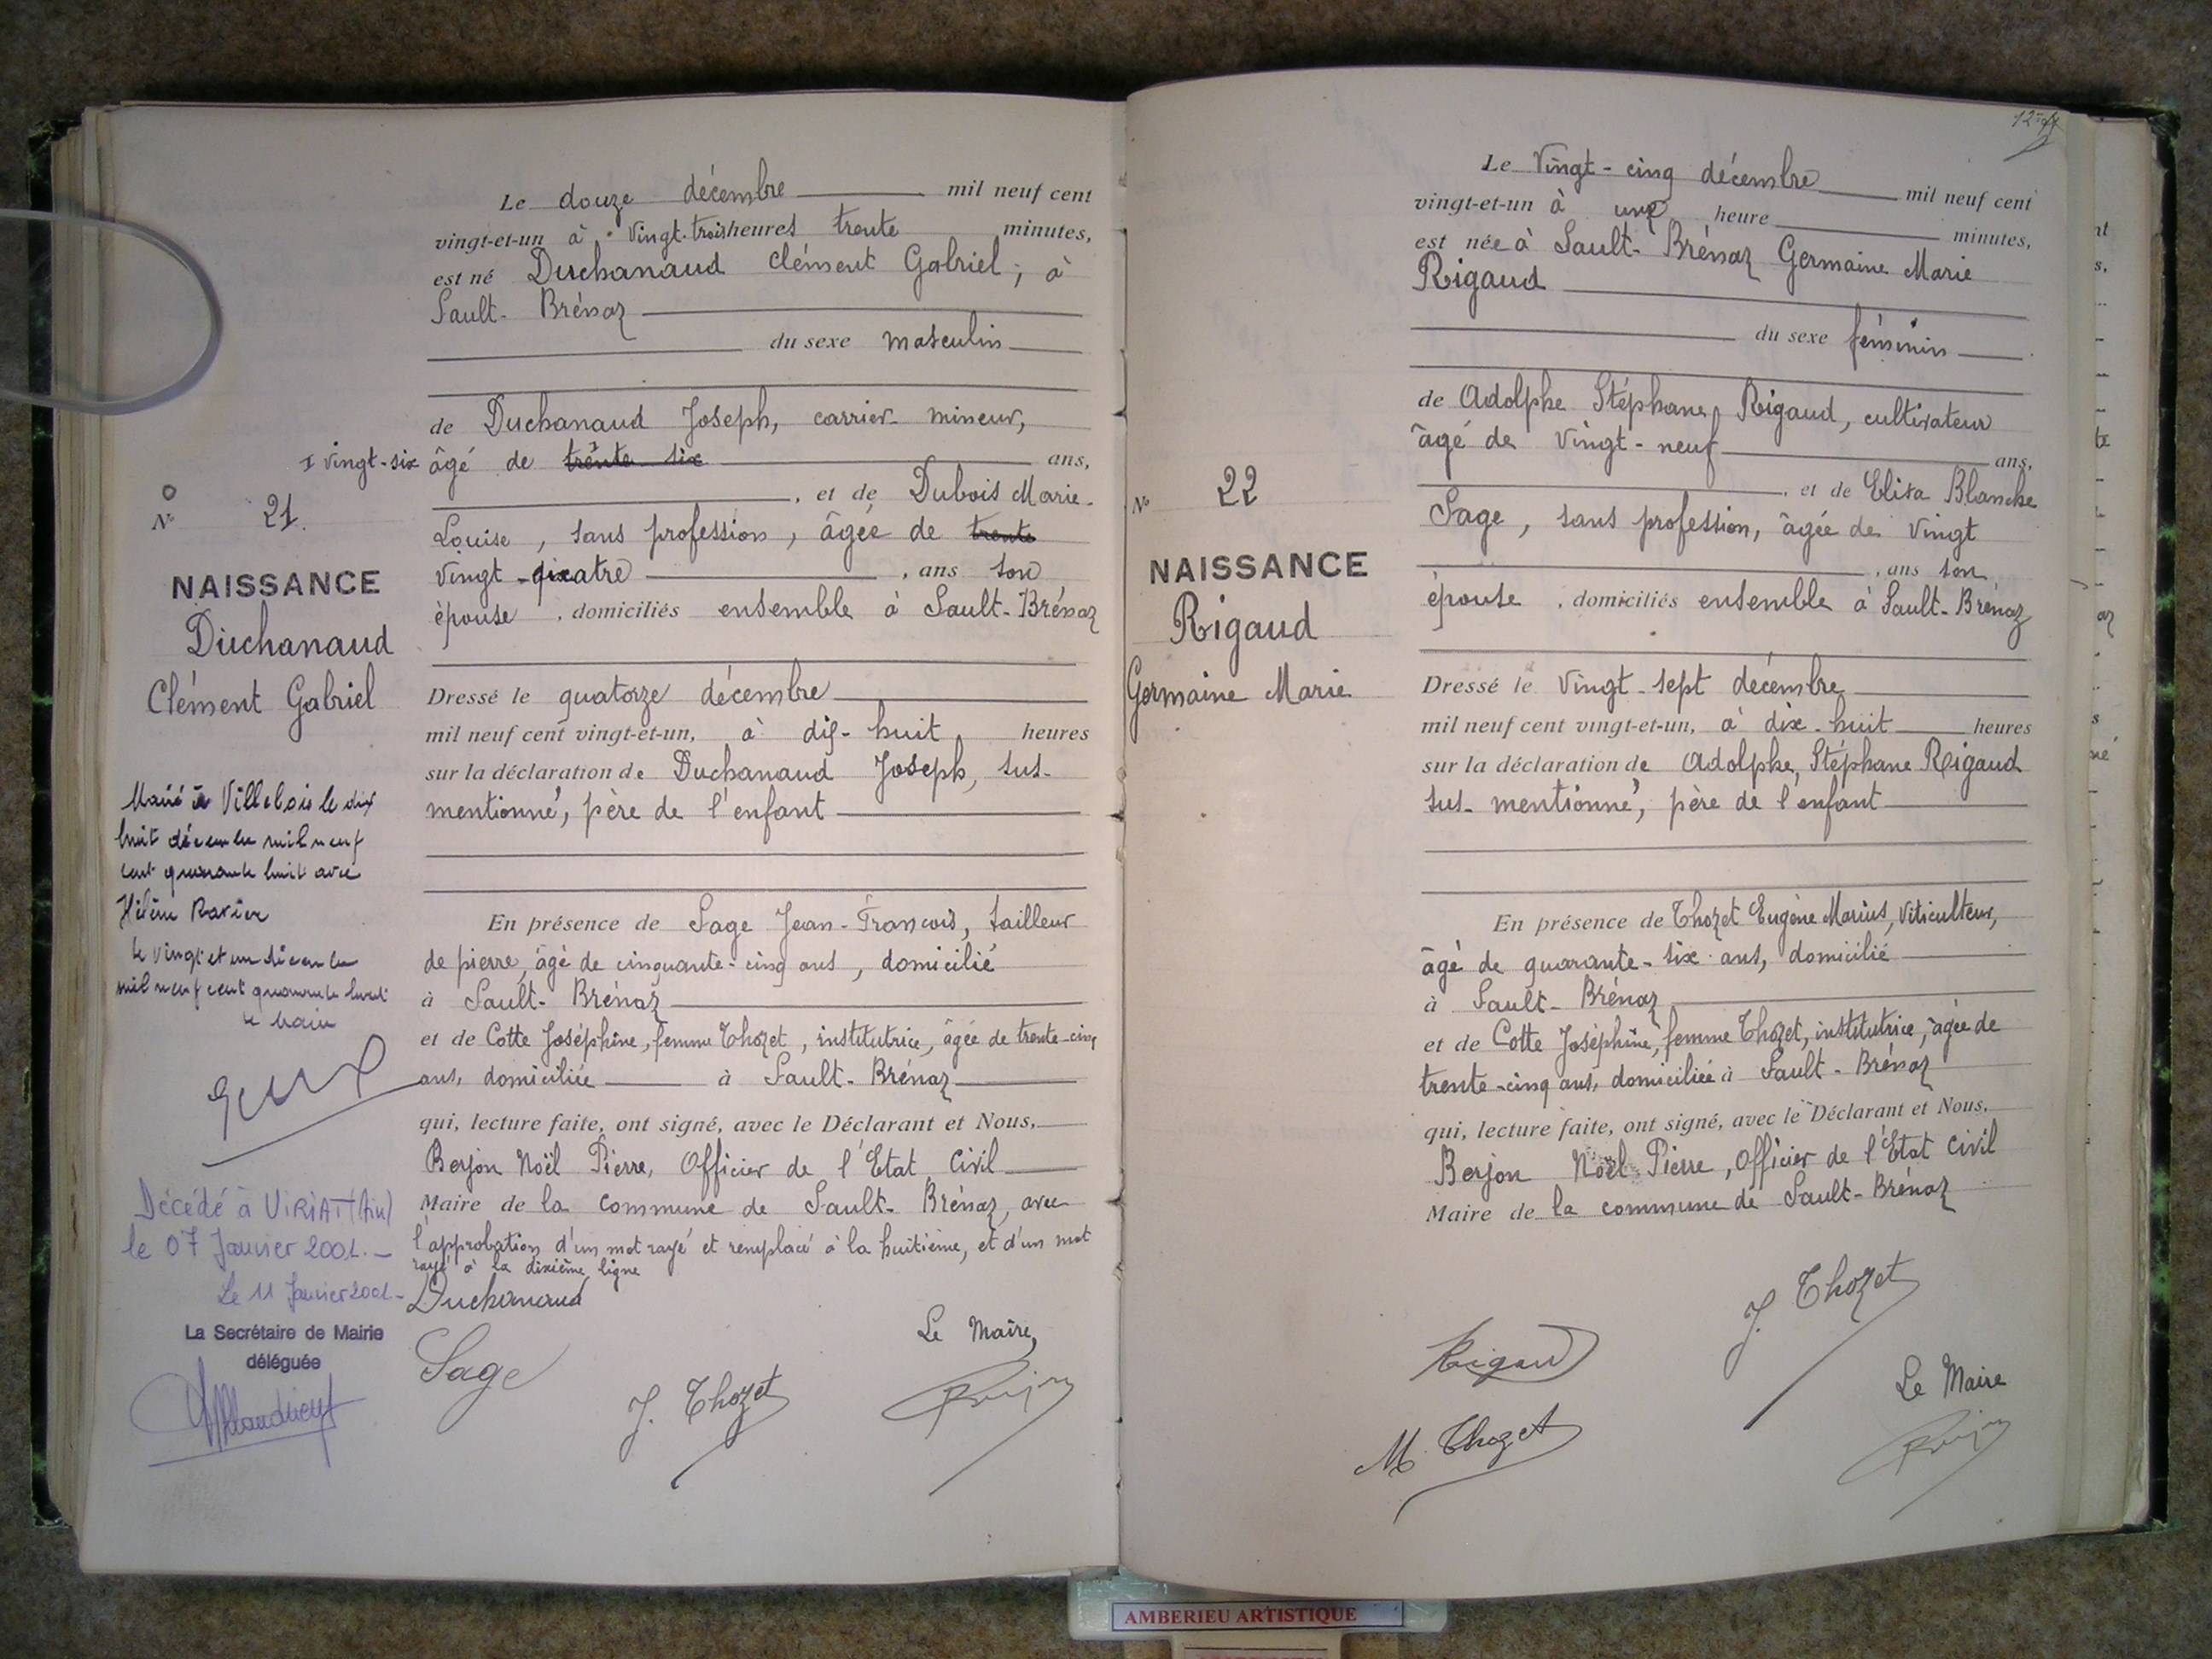 Le douze décembre mil neuf cent
vingt-et-un à vingt-trois heures trente minutes,
est né Duchanaud Clément Gabriel, à
Sault-Brénaz
du sexe masculin
de Duchanaud Joseph, carrier-mineur,
I vingt-six âgé de trente six ans,
, et de Dubois Marie-
Louise, sans profession, âgée de trente
vingt-quatre , ans son
épouse , domiciliés ensemble à Sault-Brénaz
Dressé le quatorze décembre
mil neuf cent vingt-et-un, à dix-huit heures
sur la déclaration de Duchanaud Joseph, sus-
mentionné, père de l'enfant
En présence de Sage Jean-François, tailleur
de pierre, âgé de cinquante-cinq ans, domicilié
à Sault-Brénaz
et de Cotte Joséphine, femme Thozet, institutrice, âgée de trente-cinq
ans, domiciliée à Sault-Brénaz
qui, lecture faite, ont signé, avec le Déclarant et Nous,
Berjon Noël Pierre, Officier de l'Etat Civil
Maire de la commune de Sault-Brénaz, avec
l'approbation d'un mot rayé et remplacé à la huitième, et d'un mot
rayé à la dixième ligne
Duchanaud
Sage
J. Thozet
Le Maire,
No 21.
NAISSANCE
Duchanaud
Clément Gabriel
Marié à Villebois le dix
huit décembre mil neuf
cent quarante huit avec
Hélène Ravier
le vingt et un décembre
mil neuf cent quarante huit
le maire
Décédé à VIRIAT (Ain)
le 07 Janvier 2001.-
Le 11 Janvier 2001-
La Secrétaire de Mairie
déléguée
12
Le Vingt-cinq décembre mil neuf cent
vingt-et-un à une heure minutes,
est née à Sault-Brénaz Germaine Marie
Rigaud
du sexe féminin
de Adolphe Stéphane Rigaud, cultivateur
âgé de vingt-neuf ans,
, et de Elisa Blanche
Sage, sans profession, âgée de vingt
, ans son
épouse , domiciliés ensemble à Sault-Brénaz
Dressé le vingt-sept décembre
mil neuf cent vingt-et-un, à dix-huit heures
sur la déclaration de Adolphe, Stéphane Rigaud
sus-mentionné, père de l'enfant
En présence de Thozet Eugène Marius, viticulteur,
âgé de quarante-six ans, domicilié
à Sault-Brénaz
et de Cotte Joséphine, femme Thozet, institutrice, âgée de
trente-cinq ans, domiciliée à Sault-Brénaz
qui, lecture faite, ont signé, avec le Déclarant et Nous,
Berjon Noël Pierre, Officier de l'Etat Civil
Maire de la commune de Sault-Brénaz
J. Thozet
Rigaud
Le Maire
M. Thozet
No 22
NAISSANCE
Rigaud
Germaine Marie
AMBERIEU ARTISTIQUE